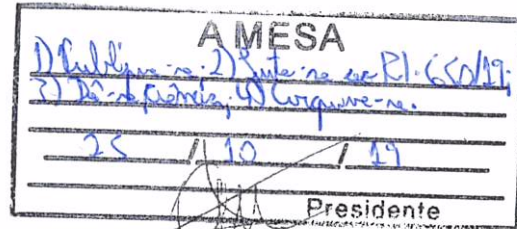 A MESA
1) Publique-se. 2) Junte-se ao RI. 650/19;
3) Dê-se ciência; 4) Arquive-se.
25 / 10 / 19
Presidente